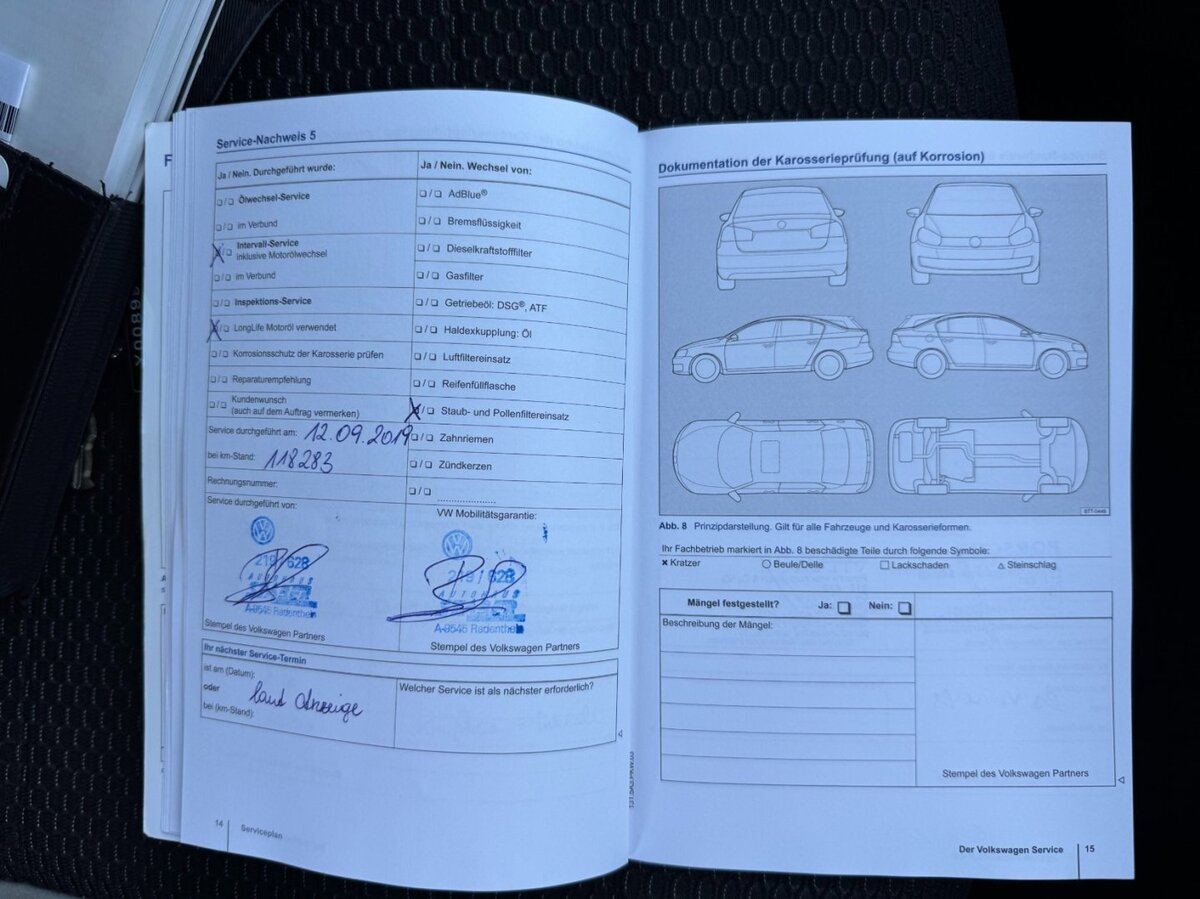 Service-Nachweis 5
Ja / Nein. Durchgeführt wurde:
❑/❑ Ölwechsel-Service
❑/❑ im Verbund
X/❑ Intervall-Service
inklusive Motorölwechsel
❑/❑ im Verbund
❑/❑ Inspektions-Service
X/❑ LongLife Motoröl verwendet
❑/❑ Korrosionsschutz der Karosserie prüfen
❑/❑ Reparaturempfehlung
❑/❑ Kundenwunsch
(auch auf dem Auftrag vermerken)
Service durchgeführt am: 12.09.2019
bei km-Stand: 118283
Rechnungsnummer:
Service durchgeführt von:
628
AUTOHAUS
A-9545 Radenthein
Stempel des Volkswagen Partners
Ja / Nein. Wechsel von:
❑/❑ AdBlue®
❑/❑ Bremsflüssigkeit
❑/❑ Dieselkraftstofffilter
❑/❑ Gasfilter
❑/❑ Getriebeöl: DSG®, ATF
❑/❑ Haldexkupplung: Öl
❑/❑ Luftfiltereinsatz
❑/❑ Reifenfüllflasche
X/❑ Staub- und Pollenfiltereinsatz
❑/❑ Zahnriemen
❑/❑ Zündkerzen
❑/❑ ....................
VW Mobilitätsgarantie:
/ 628
AUTOHAUS
A-9545 Radenthein
Stempel des Volkswagen Partners
Ihr nächster Service-Termin
ist am (Datum):
oder laut Anzeige
bei (km-Stand):
Welcher Service ist als nächster erforderlich?
14
Serviceplan
Dokumentation der Karosserieprüfung (auf Korrosion)
Abb. 8 Prinzipdarstellung. Gilt für alle Fahrzeuge und Karosserieformen.
Ihr Fachbetrieb markiert in Abb. 8 beschädigte Teile durch folgende Symbole:
× Kratzer ○ Beule/Delle □ Lackschaden △ Steinschlag
Mängel festgestellt? Ja: ❑ Nein: ❑
Beschreibung der Mängel:
Stempel des Volkswagen Partners
Der Volkswagen Service
15